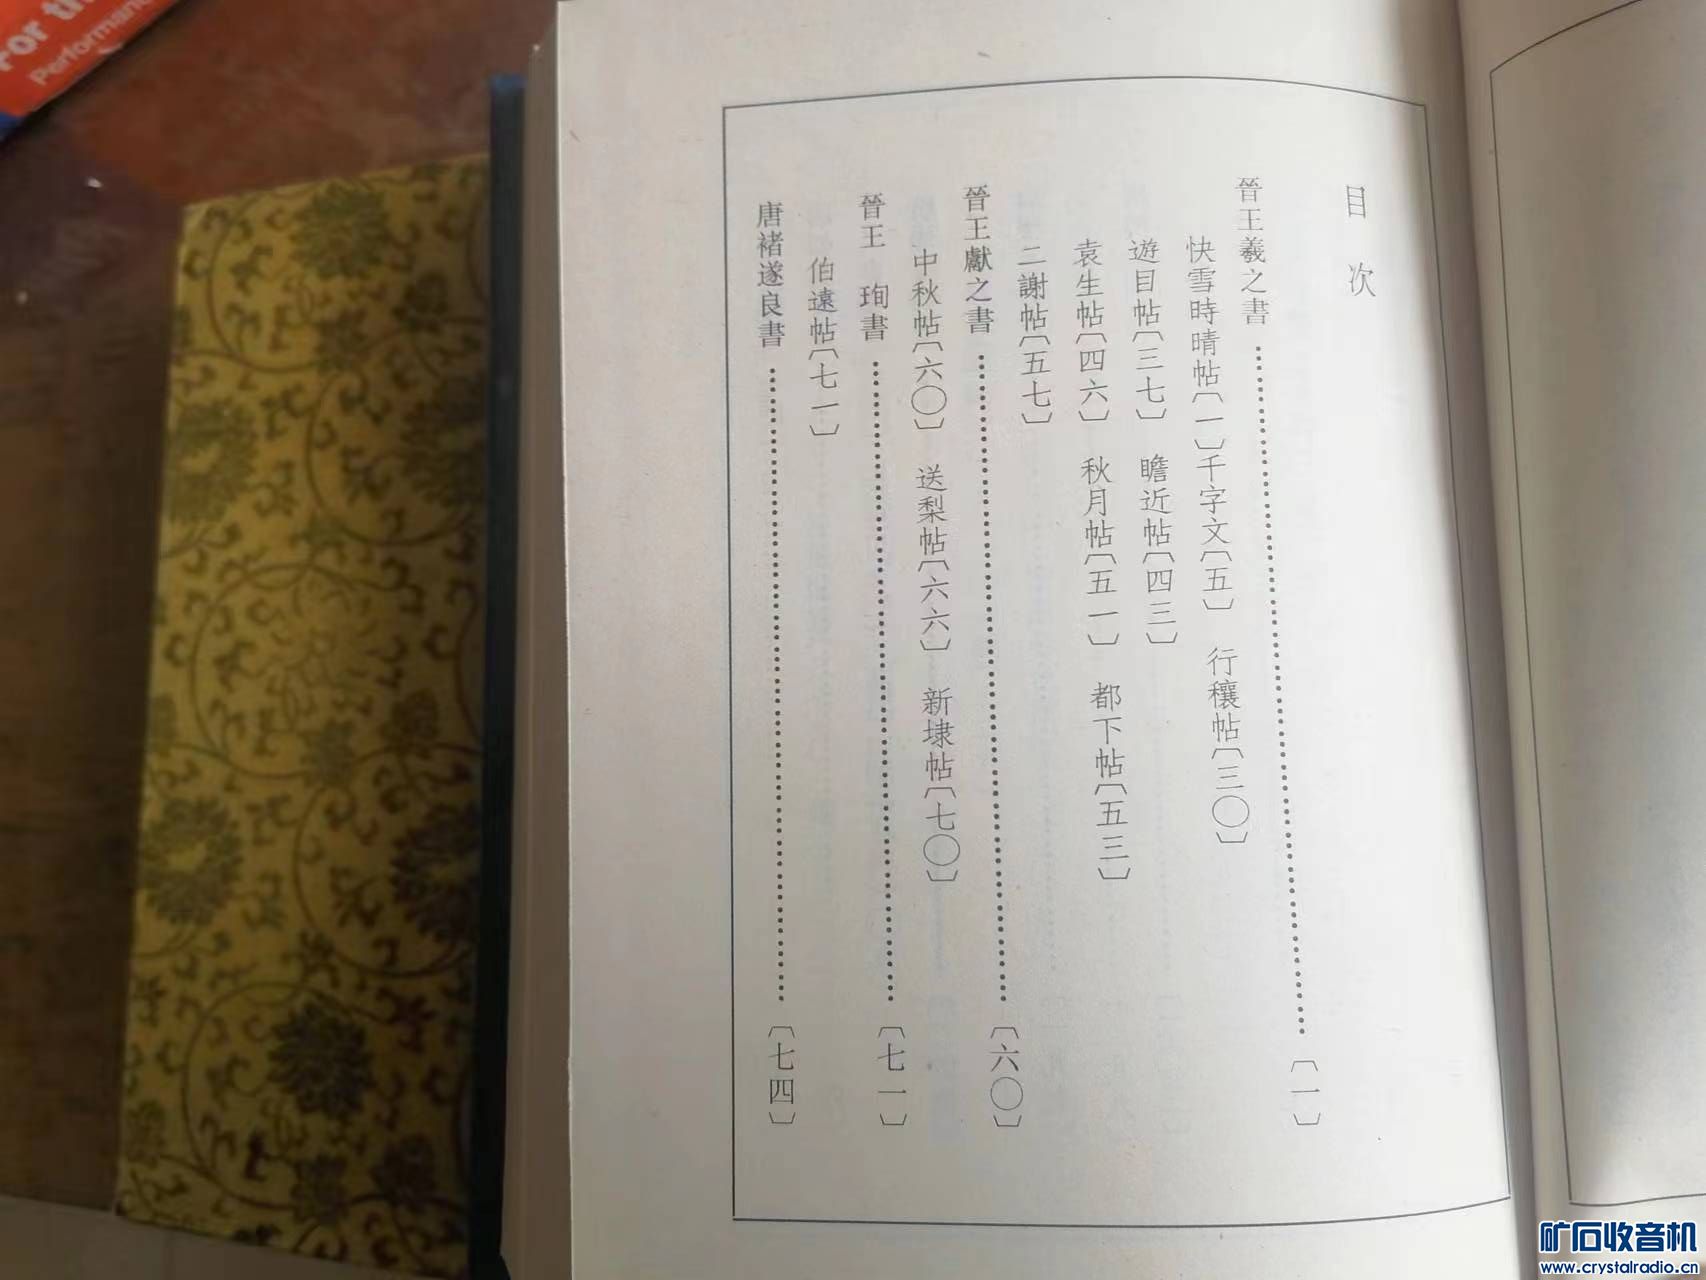 目次
晉王羲之書……〔一〕
快雪時晴帖〔一〕千字文〔五〕 行穰帖〔三〇〕
遊目帖〔三七〕 瞻近帖〔四三〕
袁生帖〔四六〕 秋月帖〔五一〕 都下帖〔五三〕
二謝帖〔五七〕
晉王獻之書……〔六〇〕
中秋帖〔六〇〕 送梨帖〔六六〕 新埭帖〔七〇〕
晉王 珣書……〔七一〕
伯遠帖〔七一〕
唐褚遂良書……〔七四〕
For th
Performanc
矿石收音机
www.crystalradio.cn